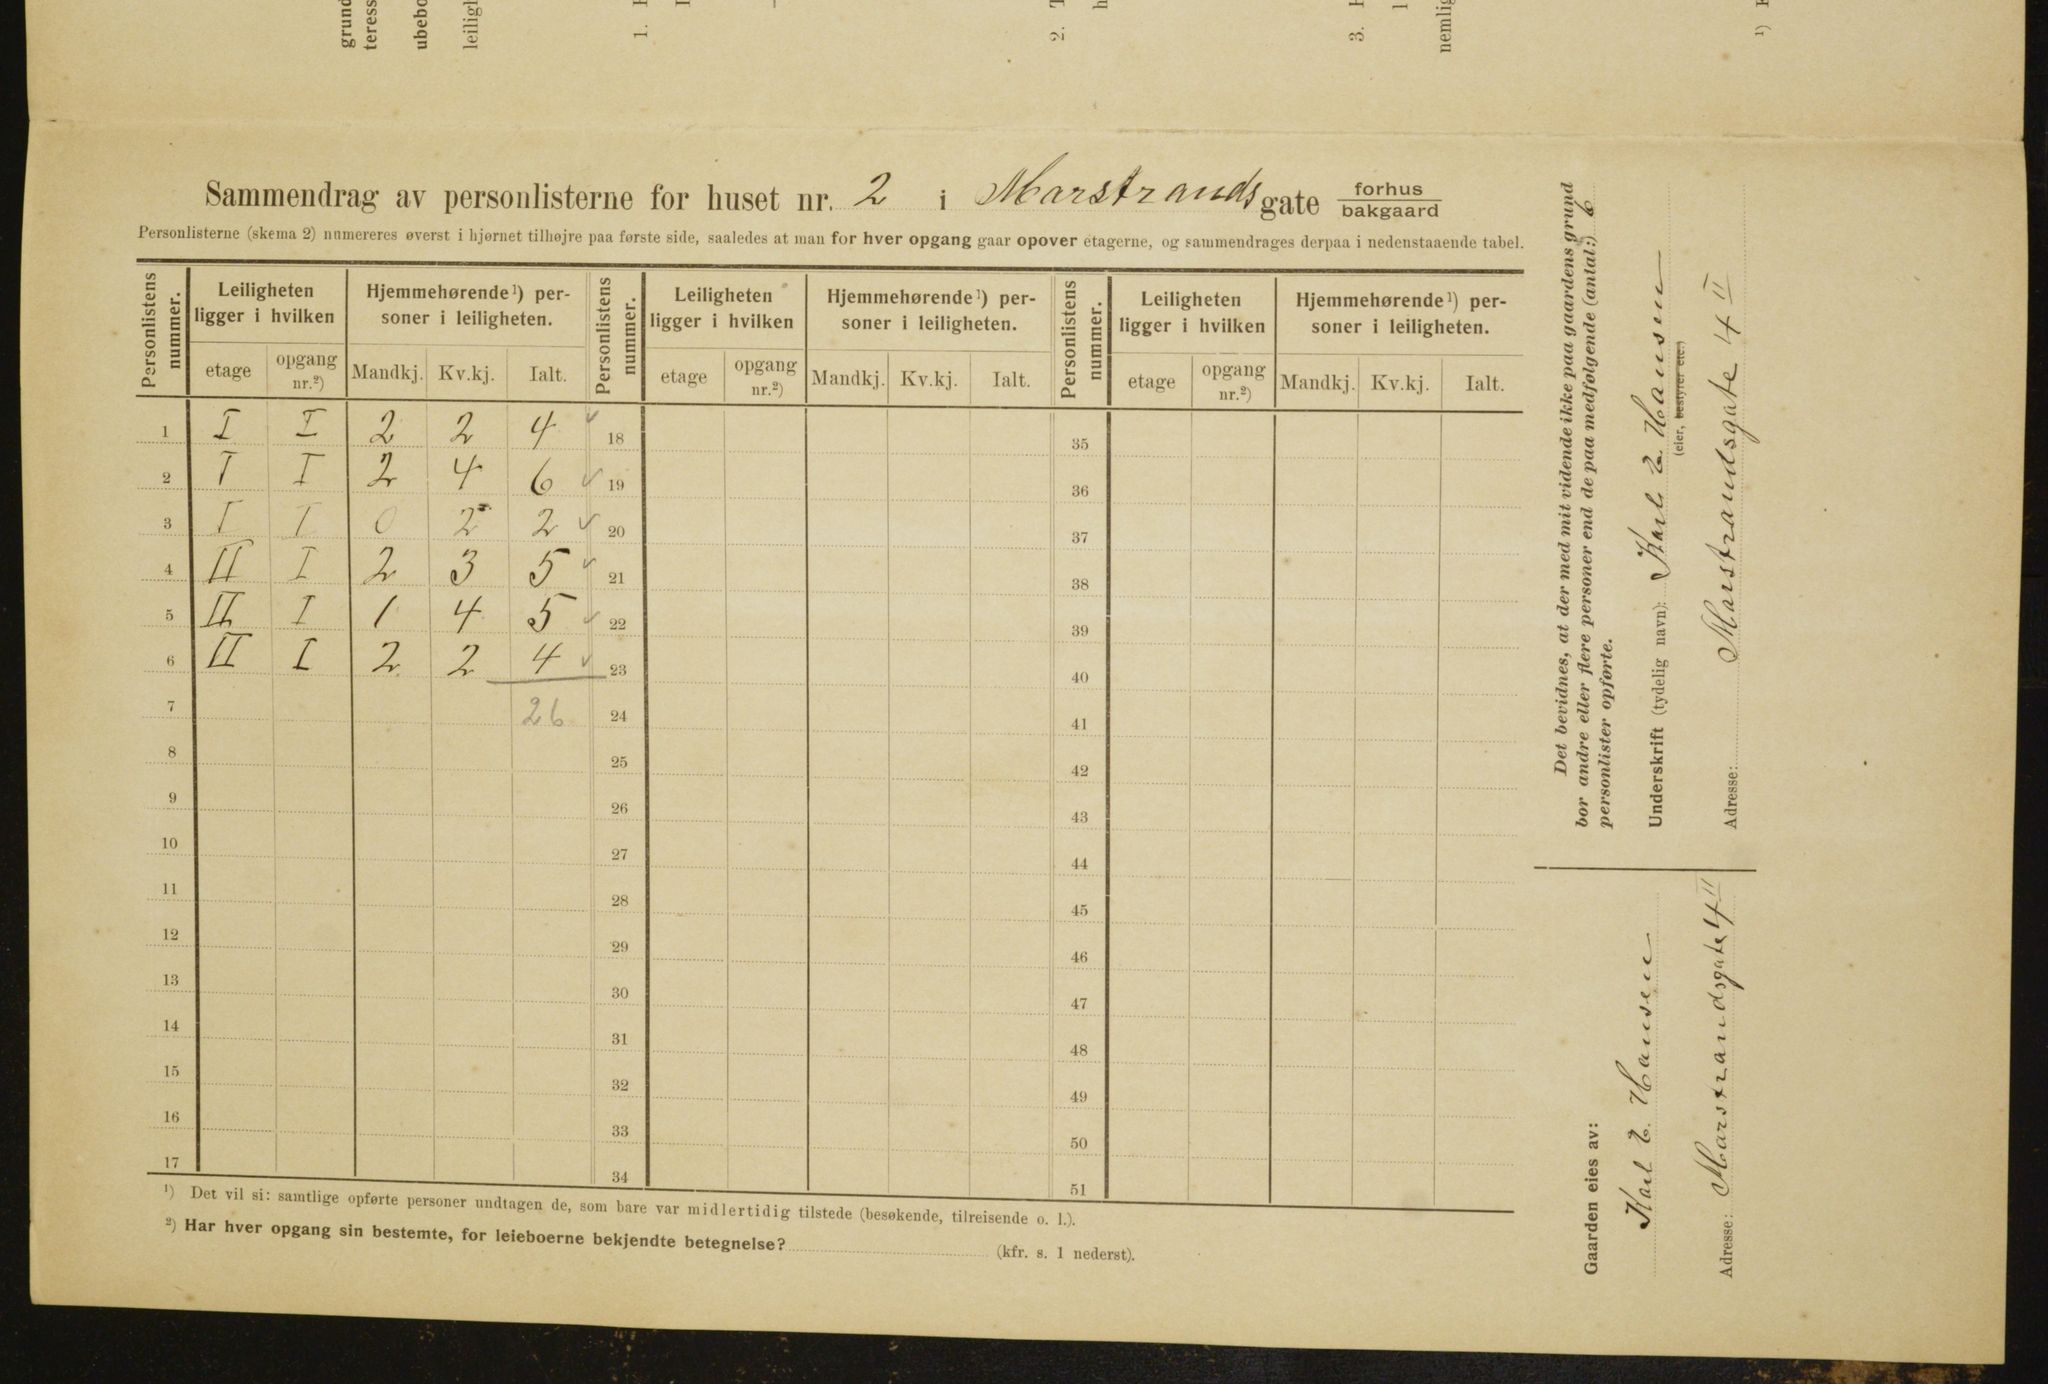 grund
teress
ubebo
leiligh
1.
2.
3.
nemlig
¹)
Sammendrag av personlisterne for huset nr. 2 i Marstrands gate forhus / bakgaard
Personlisterne (skema 2) numereres øverst i hjørnet tilhøjre paa første side, saaledes at man for hver opgang gaar opover etagerne, og sammendrages derpaa i nedenstaaende tabel.
Personlistens nummer. Leiligheten ligger i hvilken Hjemmehørende¹) personer i leiligheten. Personlistens nummer. Leiligheten ligger i hvilken Hjemmehørende¹) personer i leiligheten. Personlistens nummer. Leiligheten ligger i hvilken Hjemmehørende¹) personer i leiligheten.
etage opgang nr.²) Mandkj. Kv.kj. Ialt. etage opgang nr.²) Mandkj. Kv.kj. Ialt. etage opgang nr.²) Mandkj. Kv.kj. Ialt.
1 I I 2 2 4 ✓ 18 35
2 I I 2 4 6 ✓ 19 36
3 I I 0 2 2 ✓ 20 37
4 II I 2 3 5 ✓ 21 38
5 II I 1 4 5 ✓ 22 39
6 II I 2 2 4 ✓ 23 40
7 26 24 41
8 25 42
9 26 43
10 27 44
11 28 45
12 29 46
13 30 47
14 31 48
15 32 49
16 33 50
17 34 51
¹) Det vil si: samtlige opførte personer undtagen de, som bare var midlertidig tilstede (besøkende, tilreisende o. l.).
²) Har hver opgang sin bestemte, for leieboerne bekjendte betegnelse? (kfr. s. 1 nederst).
Det bevidnes, at der med mit vidende ikke paa gaardens grund
bor andre eller flere personer end de paa medfølgende (antal:) 6
personlister opførte.
Underskrift (tydelig navn): Karl E. Hansen
(eier, bestyrer etc.)
Adresse: Marstrandsgate 4 II
Gaarden eies av:
Karl E. Hansen
Adresse: Marstrandsgate 4 II